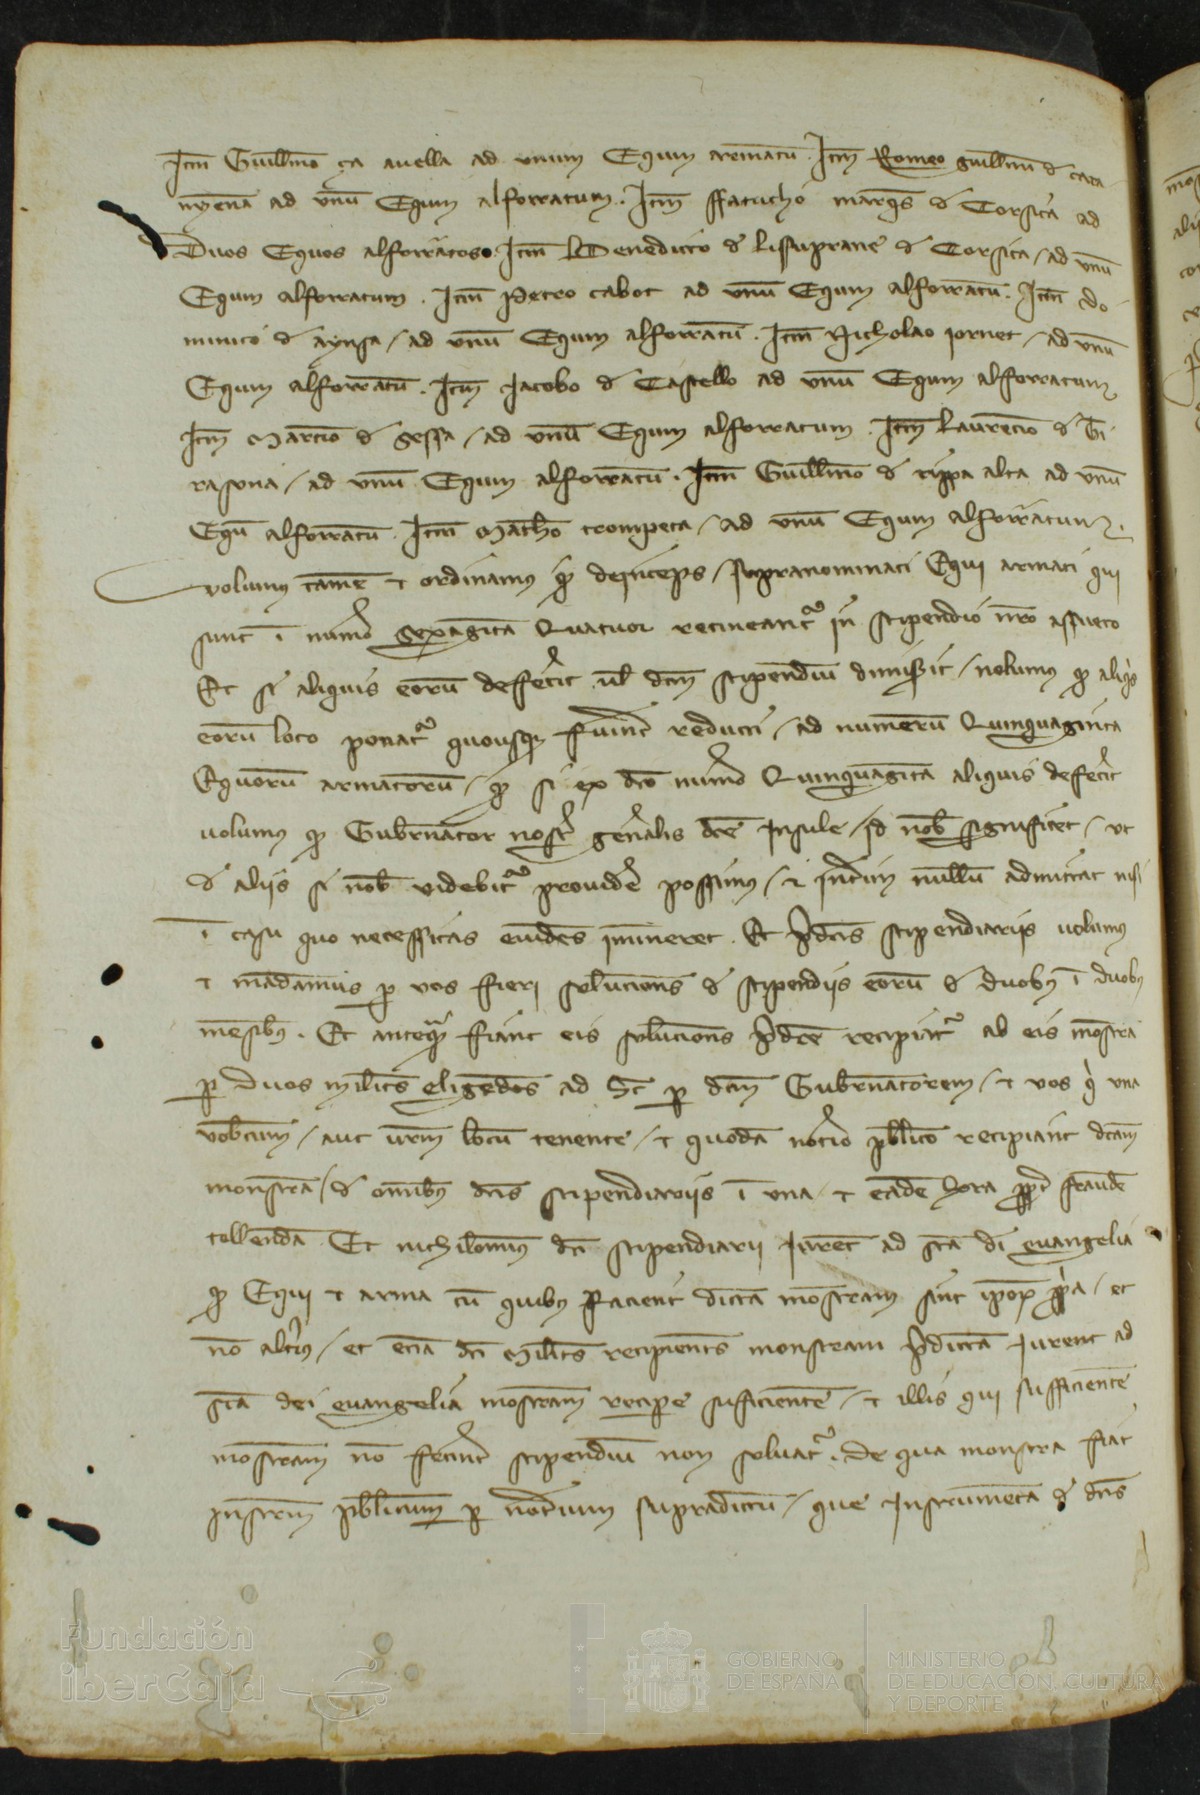 Itm Guillmo ça auella ad unum Equm armatu. Itm Romeo guillmi d cata
nyena ad unu Equm alforratum. Itm ffatucho marqs d Corsica ad
Duos Equos alforratos. Itm Benedicto de d Corsica / ad unu
Equm alforratum. Itm Petro cabot ad unu Equm alforratu. Itm do
minico d aynsa / ad unu Equm alforratu. Itm Nicholao jornet / ad unu
Equm alforratu. Itm Jacobo d Castello ad unu Equm alforratum
Itm Martino d sessa / ad unu Equm alforratum. Itm Laurencio d Ti
rasona / ad unu Equm alforratu. Itm Guillmo d rippa alta ad unu
Equ alforratu. Itm Matho trompeta / ad unu Equm alforratum.
volumus tame et ordinamus q deinceps / supranominati Equi armati qui
sunt i numo sexaginta Quatuor retineant in stipendio nro assueto
Et si aliquis eoru deffecit ul dcm stipendiu dimisit / nolumus q aliqs
eoru loco ponat quousq fuint reducti / ad numeru Quinquaginta
Equoru armatoru / q si ex dco numo Quinquaginta aliquis defecit
uolumus q Gubnator nost genalis dce Insule / id nob significet / ut
d aliis si nob videbit prouide possimus / et intim nullu admittat nisi
i casu quo necessitas euides imineret. Et pdcis stipendiariis uolumus
et madamus p vos fieri solucions d stipendiis eoru d duobus i duobus
mesibus. Et anteq fiant eis solucions pdce recipiat ab eis mostra
p duos milits eligedos ad hc p dcm Gubnatorem / et vos q una
vobcum / aut urm locu tenente / et quoda notio publico recipiant dcam
monstra / d omibus dcis stipendiariis i una et eade hora fraude
tollenda Et nichilominus dci stipendiarii jurent ad sca di euangelia
q Equi et arma cu quibus facient dicta mostram sint ipor ppa / et
no altius / et ecia dci Milits recipients monstram pdicta jurent ad
sca dei euangelia mostram recipe suficiente / et illis qui sufficiente
mostram no fecint stipendiu non soluat. de qua monstra fiat
instrm publicum p notium supradictu / que Instrumeta d dcis